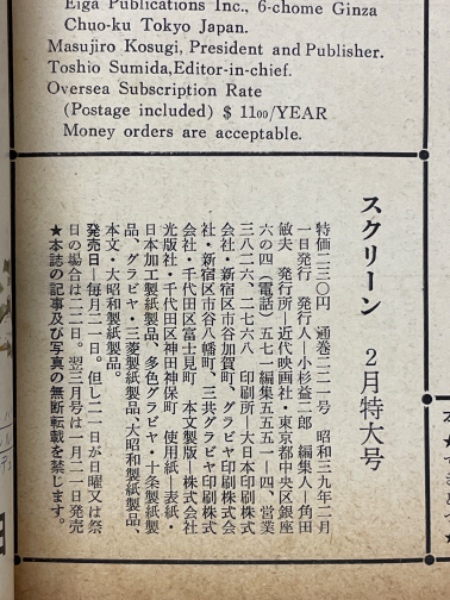 Eiga Publications Inc., 6-chome Ginza
Chuo-ku Tokyo Japan.
Masujiro Kosugi, President and Publisher.
Toshio Sumida, Editor-in-chief.
Oversea Subscription Rate
(Postage included) $ 1100/YEAR
Money orders are acceptable.
スクリーン 2月特大号
特価二三〇円 通巻二二一号 昭和三九年二月
一日発行 発行人―小杉益二郎 編集人―角田
敏夫 発行所―近代映画社・東京都中央区銀座
六の四(電話)五七一編集五五五一―四、営業
三八二六、二七六八 印刷所―大日本印刷株式
会社・新宿区市谷加賀町、グラビヤ印刷株式会
社・新宿区市谷八幡町、三共グラビヤ印刷株式
会社・千代田区富士見町 本文製版―株式会社
光版社・千代田区神田神保町 使用紙―表紙・
日本加工製紙製品、多色グラビヤ・十条製紙製
品、グラビヤ・三菱製紙製品、大昭和製紙製品、
本文・大昭和製紙製品。
発売日―毎月二一日。但し二一日が日曜又は祭
日の場合は二二日。翌三月号は一月二一日発売
★本誌の記事及び写真の無断転載を禁じます。